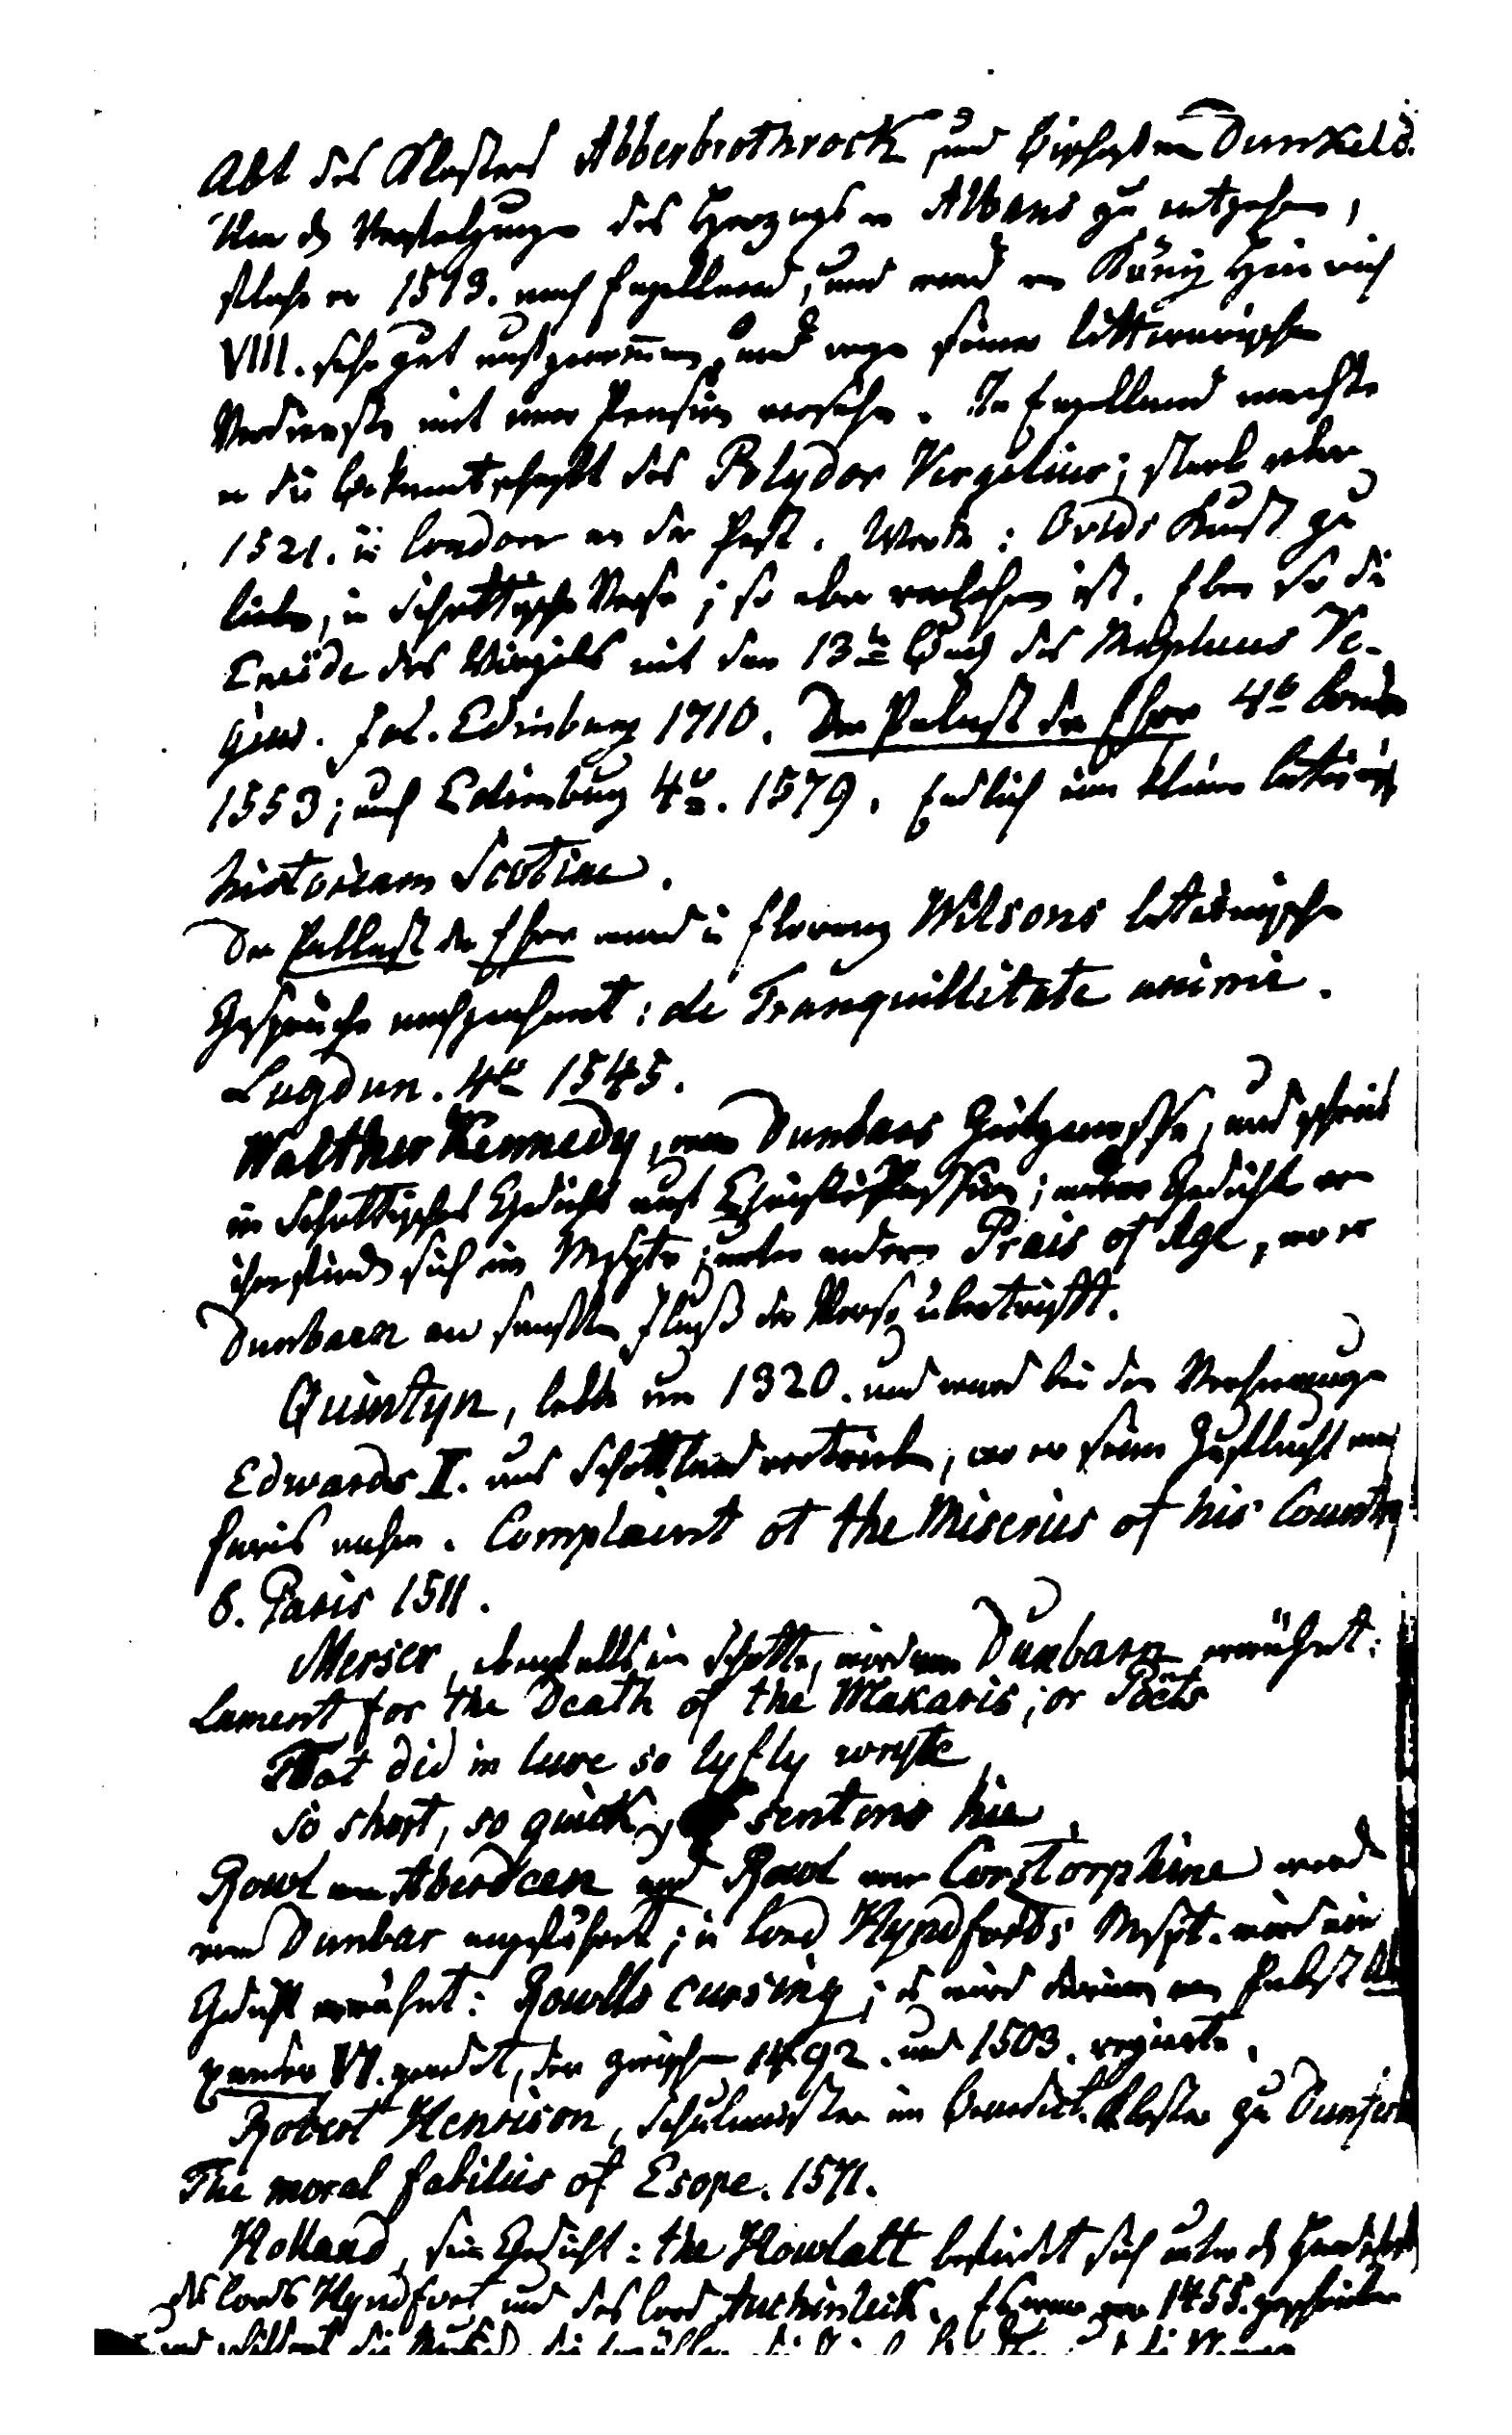 Abt des Klosters Abberbrothrock, und Bischof von Dunkeld.
Um den Verfolgungen des Herzogs von Albans zu entgehen,
flohe er 1513. nach Engelland, und ward von König Heinrich
VIII. sehr gut aufgenommen, und wegen seiner litterarischen
Verdienste mit einer Pension versehen. In Engelland machte
er die Bekanntschaft des Polydor Vergilius; starb aber
1521. in London an der Pest. Werke: Ovids Kunst zu
lieben, in Schottische Verse; so aber verlohren ist. Eben so die
Eneide des Virgils mit dem 13ten Buch des Mapheus Ve-
gius. Fol. Edinburg 1710. Der Palast der Ehre 4to London
1553; auch Edimburg 4to. 1579. Endlich eine kleine lateinische
historiam Scotiae.
Der Pallast der Ehre ward in Florenz Wilsons lateinische
Gespräche nachgeahmt: de Tranquillitate animi.
Lugdun. 4to 1545.
Walther Kennedy, war Dunbars Zeitgenosse, und schrieb
ein Schottisches Gedicht auf Christi Passion; andere Gedichte von
ihm finden sich im Mspte; unter andern Prais of Age, wo er
Dunbarn an sanften Fluß der Verse übertrifft.
Quintyn, lebte um 1320. und ward bei den
Edwards II. aus Schottland vertrieben, wo er seine Zuflucht nach
Paris nahm. Complaint of the Miseries of his Country
8. Paris 1511.
Merser, ebenfalls ein Schotte, wird von Dunbarn erwähnt:
Lament for the Death of the Makaris; or Poets
That did in luve so lyfly wryte,
so short, so quick, of sentens hie.
Rowl von Aberdeen und Rowl von Corstorphine werden
vom Dunbar angeführt; in Lord Hyndfords Mspt. wird ein
Gedicht erwähnt: Rowlls cursing; es wird darinn von Pabst Ale
xander VI. geredet, der zwischen 1492. und 1503. regierte.
Robert Henrison, Schulmeister im Benedict. Kloster zu Dunferl
The moral fabilis of Esope. 1571.
Holland, sein Gedicht: the Howlatt befindet sich unter den Handschr
des Lords Hyndfort und des Lord Auchinleck. Es war 1455. geschrieben
und schildert die